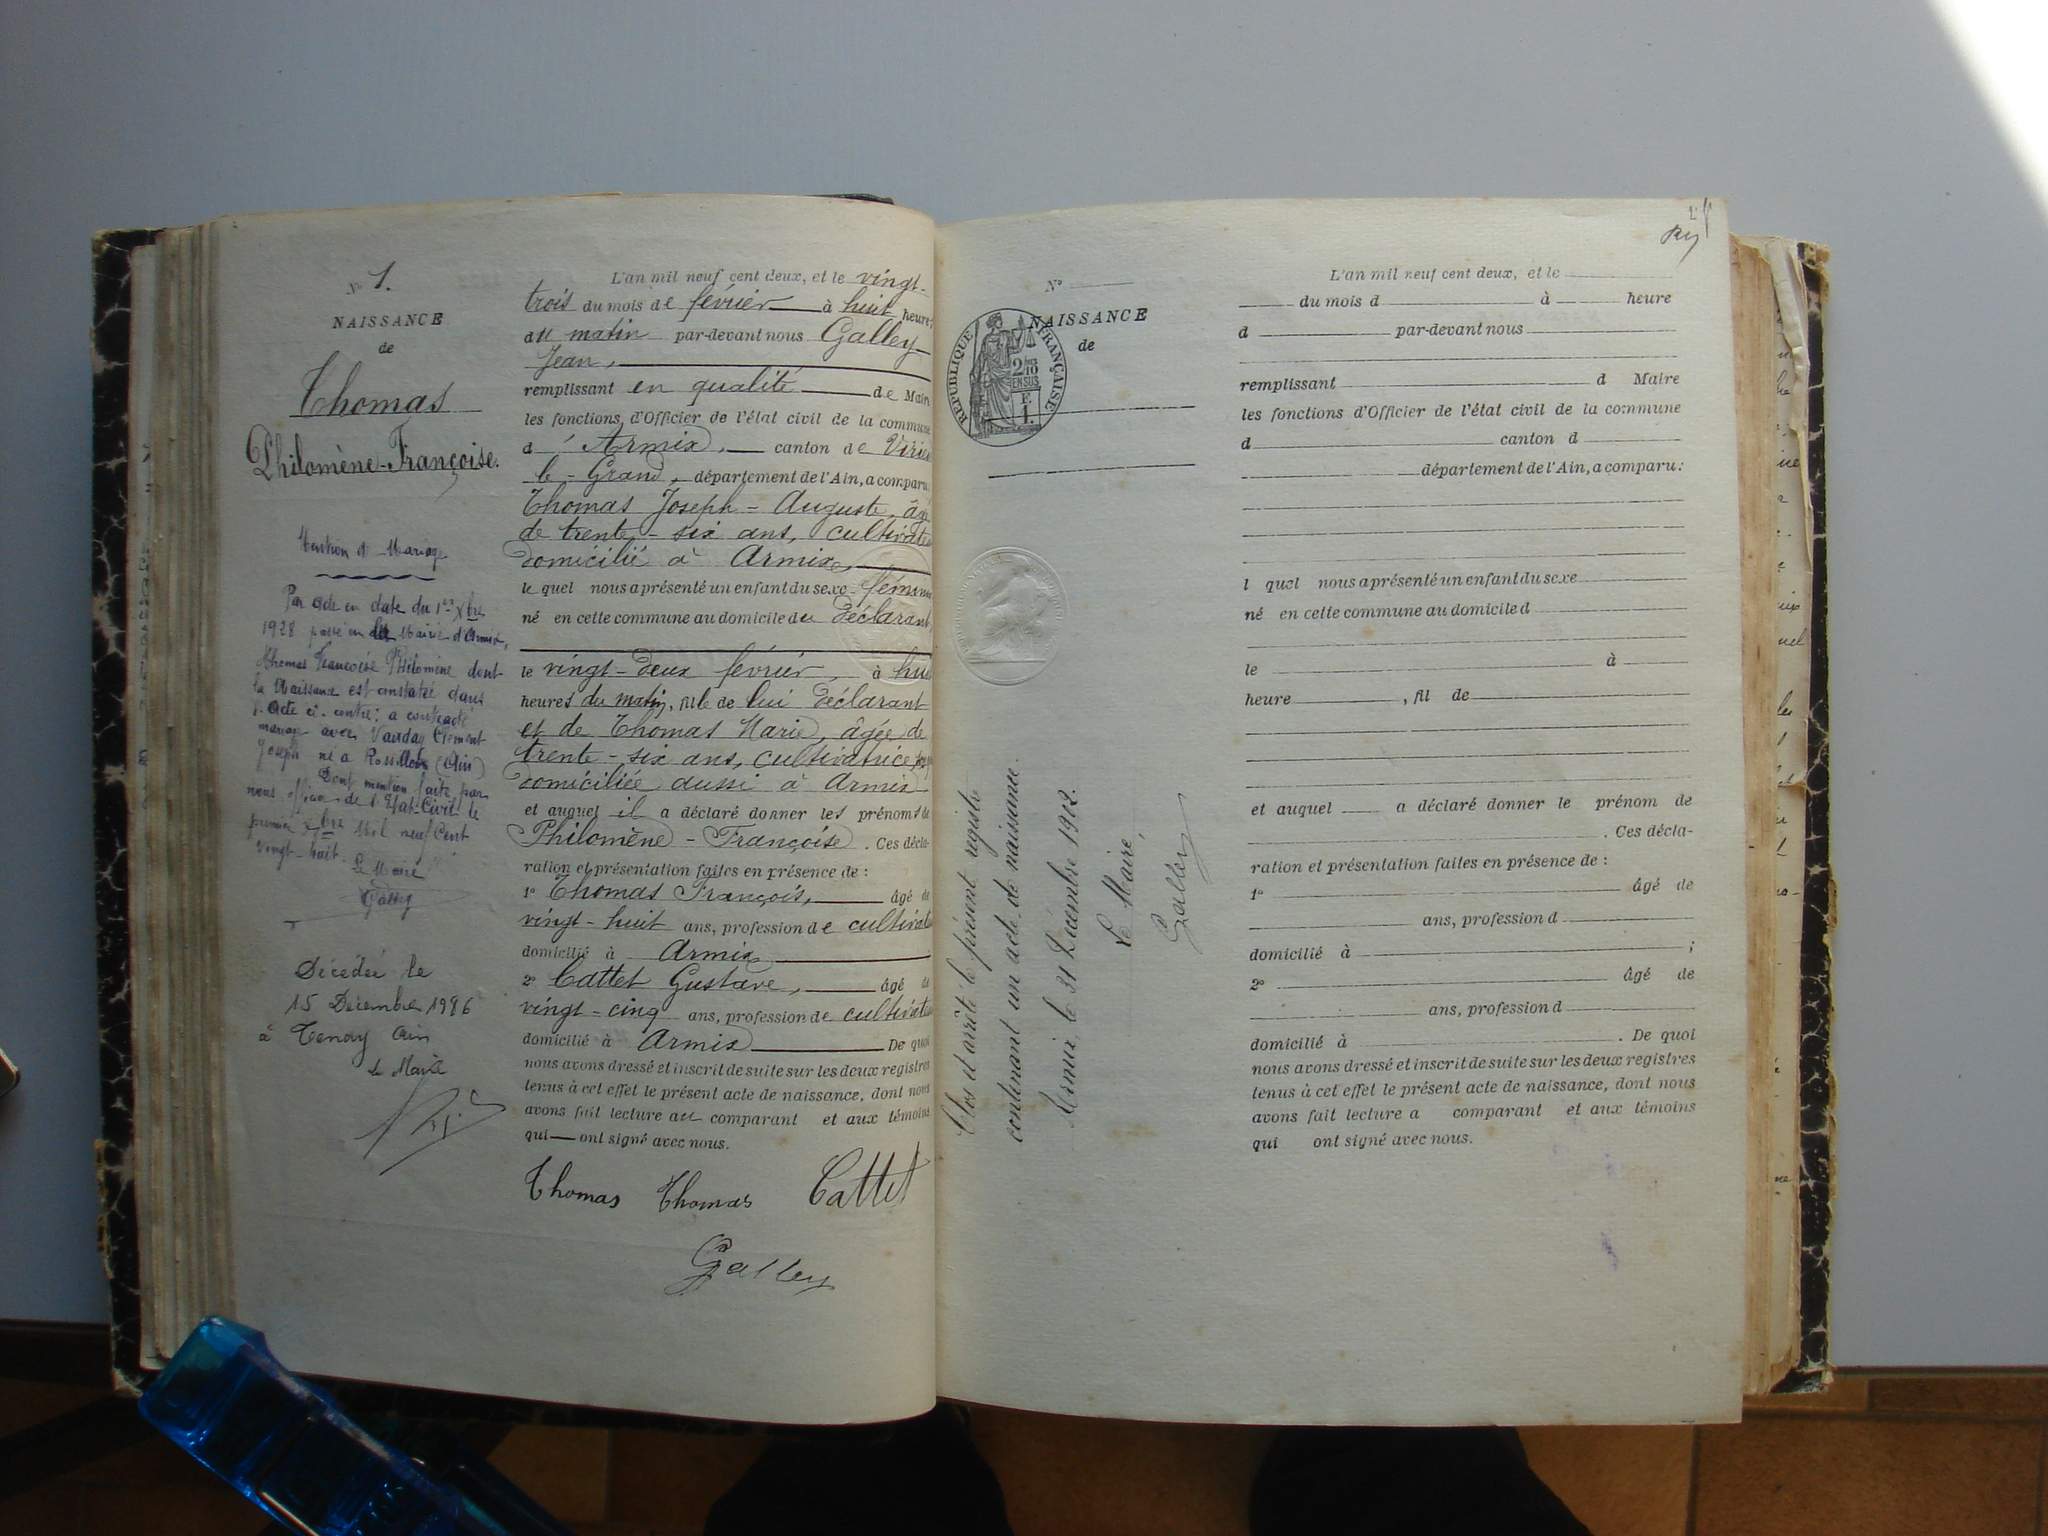 N° 1.
NAISSANCE
de
Thomas
Philomène-Françoise.
Mention de Mariage
Par acte en date du 1er Xbre
1928 passé en la Mairie d'Armix,
Thomas Françoise Philomène dont
la Naissance est constatée dans
l'acte ci-contre; a contracté
mariage avec Clément
Joseph né à Rossillon (Ain)
Dont mention faite par
nous officier de l'Etat-Civil le
premier Xbre Mil neuf Cent
Vingt-huit. Le Maire
Galley
Décédée le
15 Décembre 1986
à Tenay Ain
Le Maire
L'an mil neuf cent deux, et le vingt-
trois du mois de février à huit heures
du matin par-devant nous Galley
Jean,
remplissant en qualité de Maire
les fonctions d'Officier de l'état civil de la commune
d'Armix, canton de Virieu
le-Grand, département de l'Ain, a comparu:
Thomas Joseph-Auguste, âgé
de trente-six ans, cultivateu
domicilié à Armix,
le quel nous a présenté un enfant du sexe fémini
né en cette commune au domicile du déclarant,
le vingt-deux février, à hui
heures du matin, fille de lui déclarant
et de Thomas Marie, âgée de
trente-six ans, cultivatrice,
domiciliée aussi à Armix
et auquel il a déclaré donner les prénoms de
Philomène-Françoise. Ces décla-
ration et présentation faites en présence de :
1° Thomas François, âgé de
vingt-huit ans, profession de cultivate
domicilié à Armix
2° Cattet Gustave, âgé de
vingt-cinq ans, profession de cultivate
domicilié à Armix De quoi
nous avons dressé et inscrit de suite sur les deux registres
tenus à cet effet le présent acte de naissance, dont nous
avons fait lecture au comparant et aux témoins
qui ont signé avec nous.
Thomas Thomas Cattet
Galley
N°
NAISSANCE
de
REPUBLIQUE FRANÇAISE
2/10
EN SUS
F.
1.
Clos et arrêté le présent registre
contenant un acte de naissance.
Armix, le 31 Décembre 1902.
Le Maire,
Galley
L'an mil neuf cent deux, et le
du mois d à heure
d par-devant nous
remplissant d Maire
les fonctions d'Officier de l'état civil de la commune
d canton d
département de l'Ain, a comparu:
l quel nous a présenté un enfant du sexe
né en cette commune au domicile d
le à
heure , fil de
et auquel a déclaré donner le prénom de
. Ces décla-
ration et présentation faites en présence de :
1° âgé de
ans, profession d
domicilié à ;
2° âgé de
ans, profession d
domicilié à . De quoi
nous avons dressé et inscrit de suite sur les deux registres
tenus à cet effet le présent acte de naissance, dont nous
avons fait lecture a comparant et aux témoins
qui ont signé avec nous.